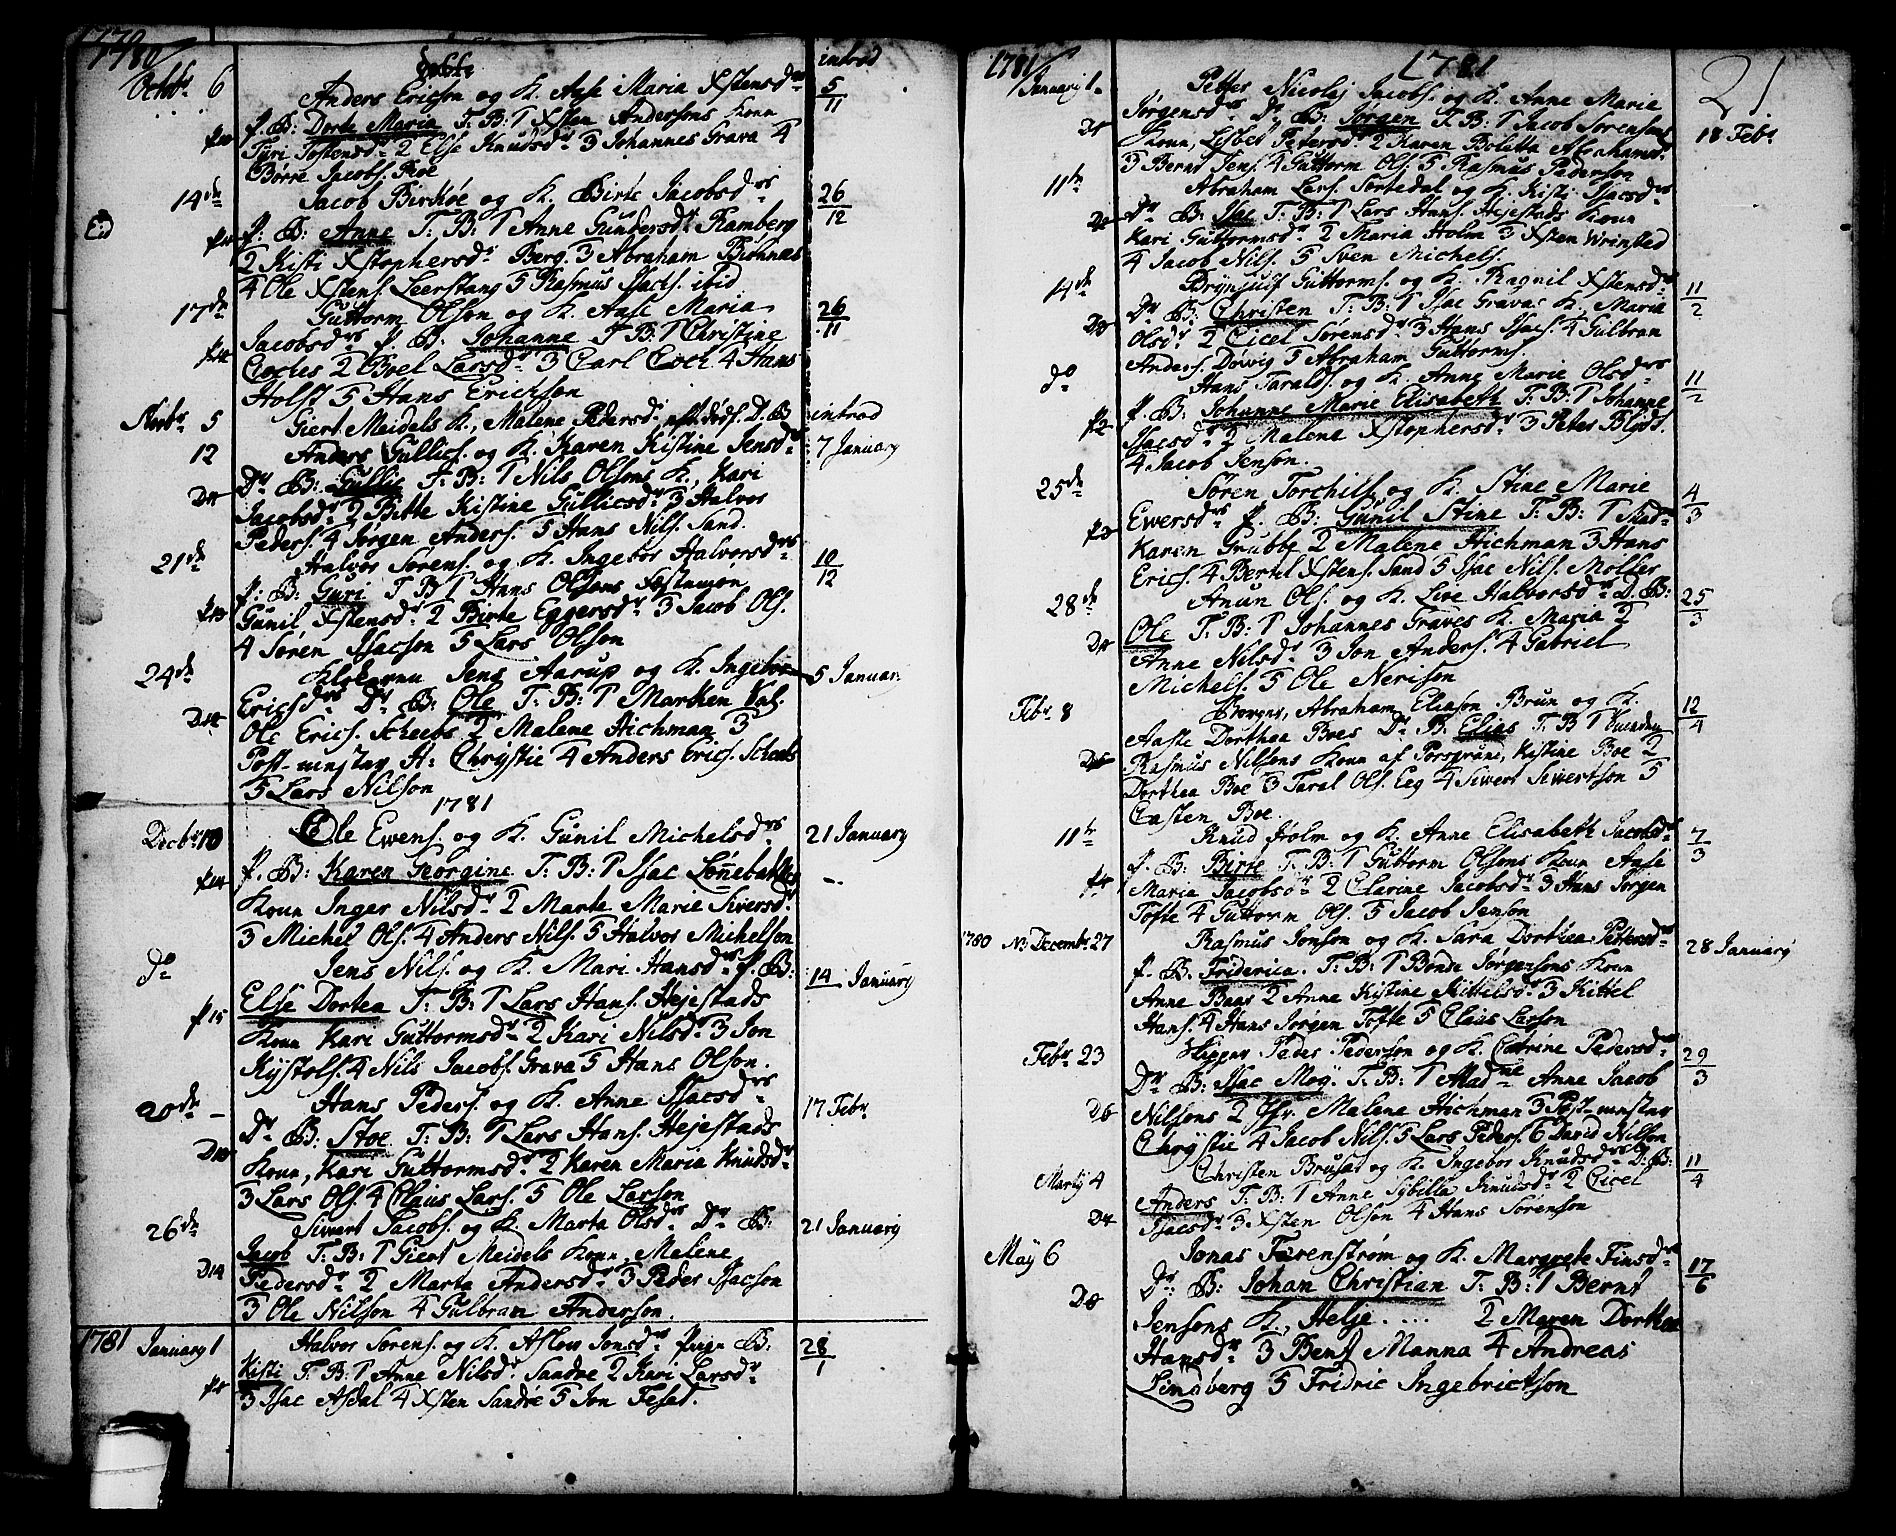 1780
introd
Octbr 6 Anders Ericson og K. Aase Maria Xstensdr 5/11
P. B: Dorte Maria T. B: 1 Xsten Andersons Konn
Tyri Tostensdr 2 Else Knudsdr 3 Johannes Grava 4
Børre Jacobs. Boe
14de Jacob Birkøe og K. Birte Jacobsdrs 26/12
P. B: Anne T. B: 1 Anne Gundersdr Ramberg
2 Kisti Xstophersdr Berg. 3 Abraham Birknæs
4 Ole Xstens. Leerstang 5 Rasmus Isacs. ibid
17de Guttorm Olson og K. Aase Maria 26/11
Jacobsdrs P. B: Johanne T. B: 1 Christine
2 Boel Larsdr 3 Carl 4 Hans
Holst 5 Hans Erickson
Novbr 5 Giert Meidels K., Malene Pedersdr D. B introd
12 Anders Gullics. og K. Karen Kistine Jensdrs 7 January
Dr B: Gullic T. B: 1 Nils Olsons K, Kari
Jacobsdr 2 Bitte Kistine Gullicsdr 3 Halvor
Peders. 4 Jørgen Anders. 5 Hans Nils. Sand.
21de Halvor Sørens. og K. Ingebor Halvorsdrs 10/12
P: B: Guri T. B 1 Hans Olsons
Gunil Xstensdr 2 Birte Eggersdr 3 Jacob Ols.
4 Søren Isacson 5 Lars Olson
24de Klokkeren Jens Aarup og K. Ingebor 5 January
Ericsdrs Dr B: Ole T. B: 1 Marthen
Ole Erics. Scheebs 2 Malene Hichman 3
Post-mester H: Chrystie 4 Anders Erics. Scheebs
5 Lars Nilson
1781
Decbr 10 Ole Ewens. og K. Gunil Michelsdrs 21 January
P. B: Karen Georgine T. B: 1 Isac Lønebakkes
Konn Inger Nilsdr 2 Marte Marie Siversdr
3 Michel Ols. 4 Anders Nils. 5 Halvor Michelson
do Jens Nils. og K. Mari Hansdrs P. B: 14 January
Else Dortea T. B: 1 Lars Hans. Hejestads
P15 Konn Kari Guttormsdr 2 Kari Nilsdr 3 Jon
Kystols. 4 Nils Jacobs. Grava 5 Hans Olson.
20de Hans Peders. og K. Anne Isacsdrs 17 Febr
Dr B: Stoe T. B: 1 Lars Hans. Hejestads
Konn, Kari Guttormsdr 2 Karen Maria Knudsdr
3 Lars Ols. 4 Claus Lars. 5 Ole Larson
26de Sivert Jacobs. og K. Marta Olsdrs Dr B: 21 January
Jacob T. B: 1 Giert Meidels Konn, Malene
D14 Pedersdr 2 Marta Andersdr 3 Peder Isacson
3 Ole Nilson 4 Gulbran Anderson
1781 January 1 Halvor Sørens. og K. Aslow Jonsdrs Pige B: 28/1
Kisti T. B: 1 Anne Nilsdr Sandøe 2 Kari Larsdr
3 Isac Asdal 4 Xsten Sandøe 5 Jon Tesad.
1781 1781 21
January 1. Petter Nicolaj Jacobs. og K. Anne Marie
Jørgensdrs Dr B: Jørgen T. B: 1 Jacob Sørensons 18 Febr
Konn, Lisbet Petersdr 2 Karen Bolitta Abrahamsdr
3 Bernt Jens. 4 Guttorm Ols. 5 Rasmus Pederson
11te Abraham Lars. Sortedal og K. Kisti Isacsdrs
Dr B: Isac T. B: 1 Lars Hans. Hejestads Konn
Kari Guttormsdr 2 Maria Holm 3 Xsten Wrinsted
4 Jacob Nils. 5 Sven Michels.
14de Brynjuif Guttorms. og K. Ragnil Xstensdrs 11/2
Dr B: Christen T. B: 1 Isac Gravas K, Maria
Olsdr 2 Cicel Sørensdr 3 Hans Isacs. 4 Gulbran
Anders. Døwig 5 Abraham Guttorms.
do Hans Taralds. og K. Anne Marie Olsdrs 11/2
P. B: Johanne Marie Elisabeth T. B: 1 Johanne
P2 Isacsdr 2 Malene Xstophersdr 3 Peter Blyt.
4 Jacob Jenson.
25de Søren Torchils. og K. Stine Marie 4/3
Ewersdrs P. B: Gunil Stine T. B: 1 Madme
Karen Grubbe 2 Malene Hichman 3 Hans
Erics. 4 Bertel Xstens. Sand 5 Isac Nils. Møller
28de Anun Ols. og K. Live Halvorsdrs D. B: 25/3
Ole T. B: 1 Johannes Graves K. Maria 2
Anne Nilsdr 3 Jon Anders. 4 Gabriel
Michels. 5 Ole Nerison
Febr 8 Abraham Eliason Brun og K. 12/4
Aaste Dorthea Boes Dr B: Elias T. B: 1
Rasmus Nilsons Konn af Porsgrunn, Kistine Boe 2
Dorthea Boe 3 Taral Ols. Eeg 4 Siwert Siwertson 5
Casten Boe.
11te Knud Holm og K. Anne Elisabeth Jacobsdrs 7/3
P. B: Birte T. B: 1 Guttorm Olsons Konn Aase
Maria Jacobsdr 2 Clarine Jacobsdr 3 Hans Jørgen
Tofte 4 Guttorm Ols. 5 Jacob Jenson
1780 NB Decembr 27 Rasmus Jonson og K. Sara Dorthea Pettersdrs 28 January
P. B: Friderica. T. B: 1 Bonde Jørgensons Konn
Anne Baas 2 Anne Kistine Kittelsdr 3 Kittel
Hans. 4 Hans Jørgen Tofte 5 Claus Larson
Febr 23 Skipper Peder Pederson og K. Catrine Pedersdrs 29/3
Dr B: Isac Moy. T. B: 1 Madme Anne Jacob
D6 Nilsons 2 Jfr. Malene Hichman 3 Post-mester
Chrystie 4 Jacob Nils. 5 Lars Peders. 6 David Nilson
Martij 4 Christen Brusa og K. Ingebor Knudsdrs D: B: 11/4
Anders T. B: 1 Anne Sybilla Knudsdr 2 Cicel
Isacsdr 3 Xsten Olson 4 Hans Sørenson
May 6 Jonas Færenstrøm og K. Margrete Finsdrs 17/6
Dr: B: Johan Christian T. B: 1 Bernt
Jensons K., Helje ..... 2 Maren Dorthea
Hansdr 3 Bent Manna 4 Andreas
Lindberg 5 Fridric Ingebrictson